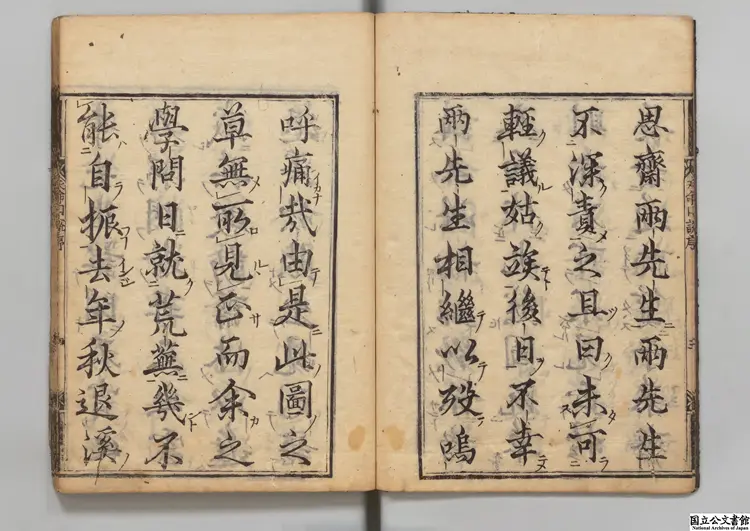 思齋兩先生兩先生
不深責之且曰未可
輕議姑俟後日不幸
兩先生相繼以歿嗚
呼痛哉由是此圖之
草無所見正而余之
學問日就荒蕪幾不
能自振去年秋退溪
国立公文書館
National Archives of Japan